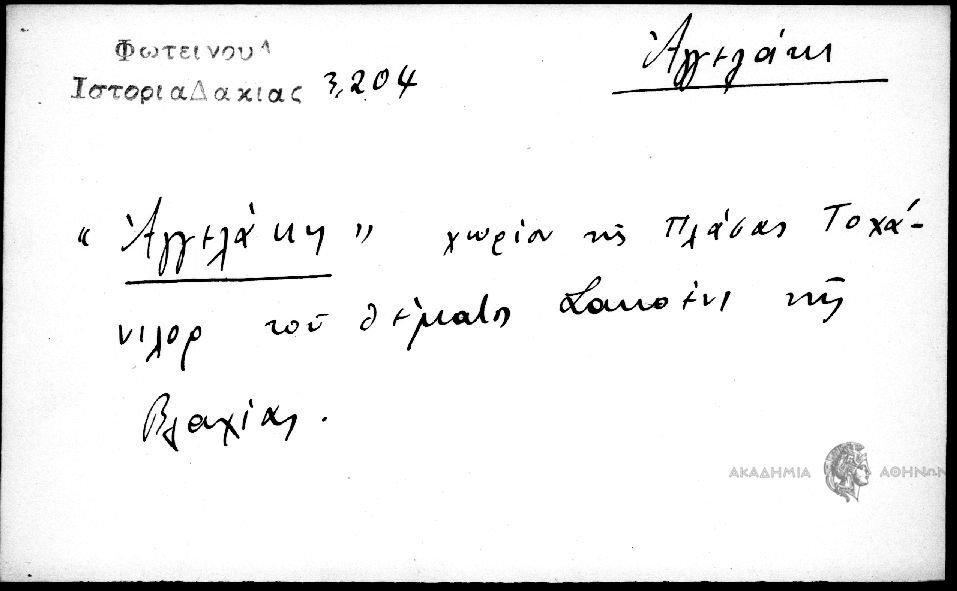 Φωτεινου Δ
Ιστορια Δακιας 3,204
Ἀγγελάκι
“ Ἀγγελάκη ” χωρίον τῆς Πλάσας Τοχά-
νιλορ τοῦ θέματος Σακοένι τῆς
Βλαχίας.
ΑΚΑΔΗΜΙΑ ΑΘΗΝΩΝ